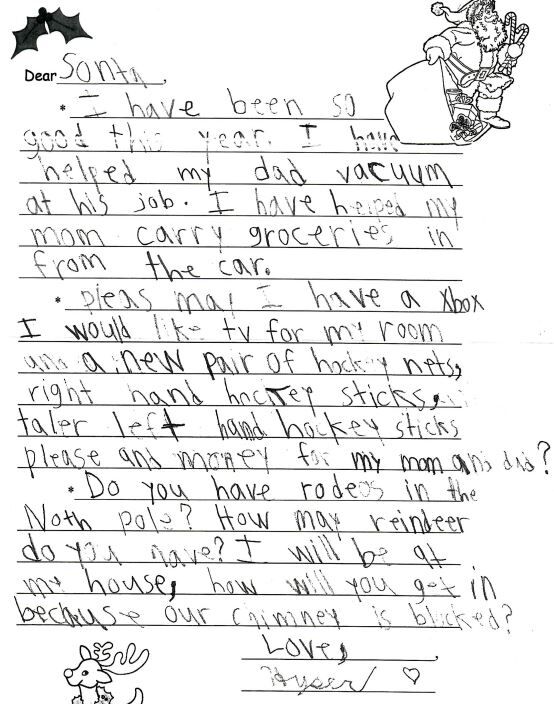 Dear Santa,
• I have been so
good this year. I have
helped my dad vacuum
at his job. I have helped my
mom carry groceries in
from the car.
• pleas may I have a xbox
I would like tv for my room
and a new pair of hockey nets,
right hand hockey sticks,
taler left hand hockey sticks
please and money for my mom and dad?
• Do you have rodeos in the
Noth pole? How may reindeer
do you have? I will be at
my house, how will you get in
because our chimney is blocked?
Love,